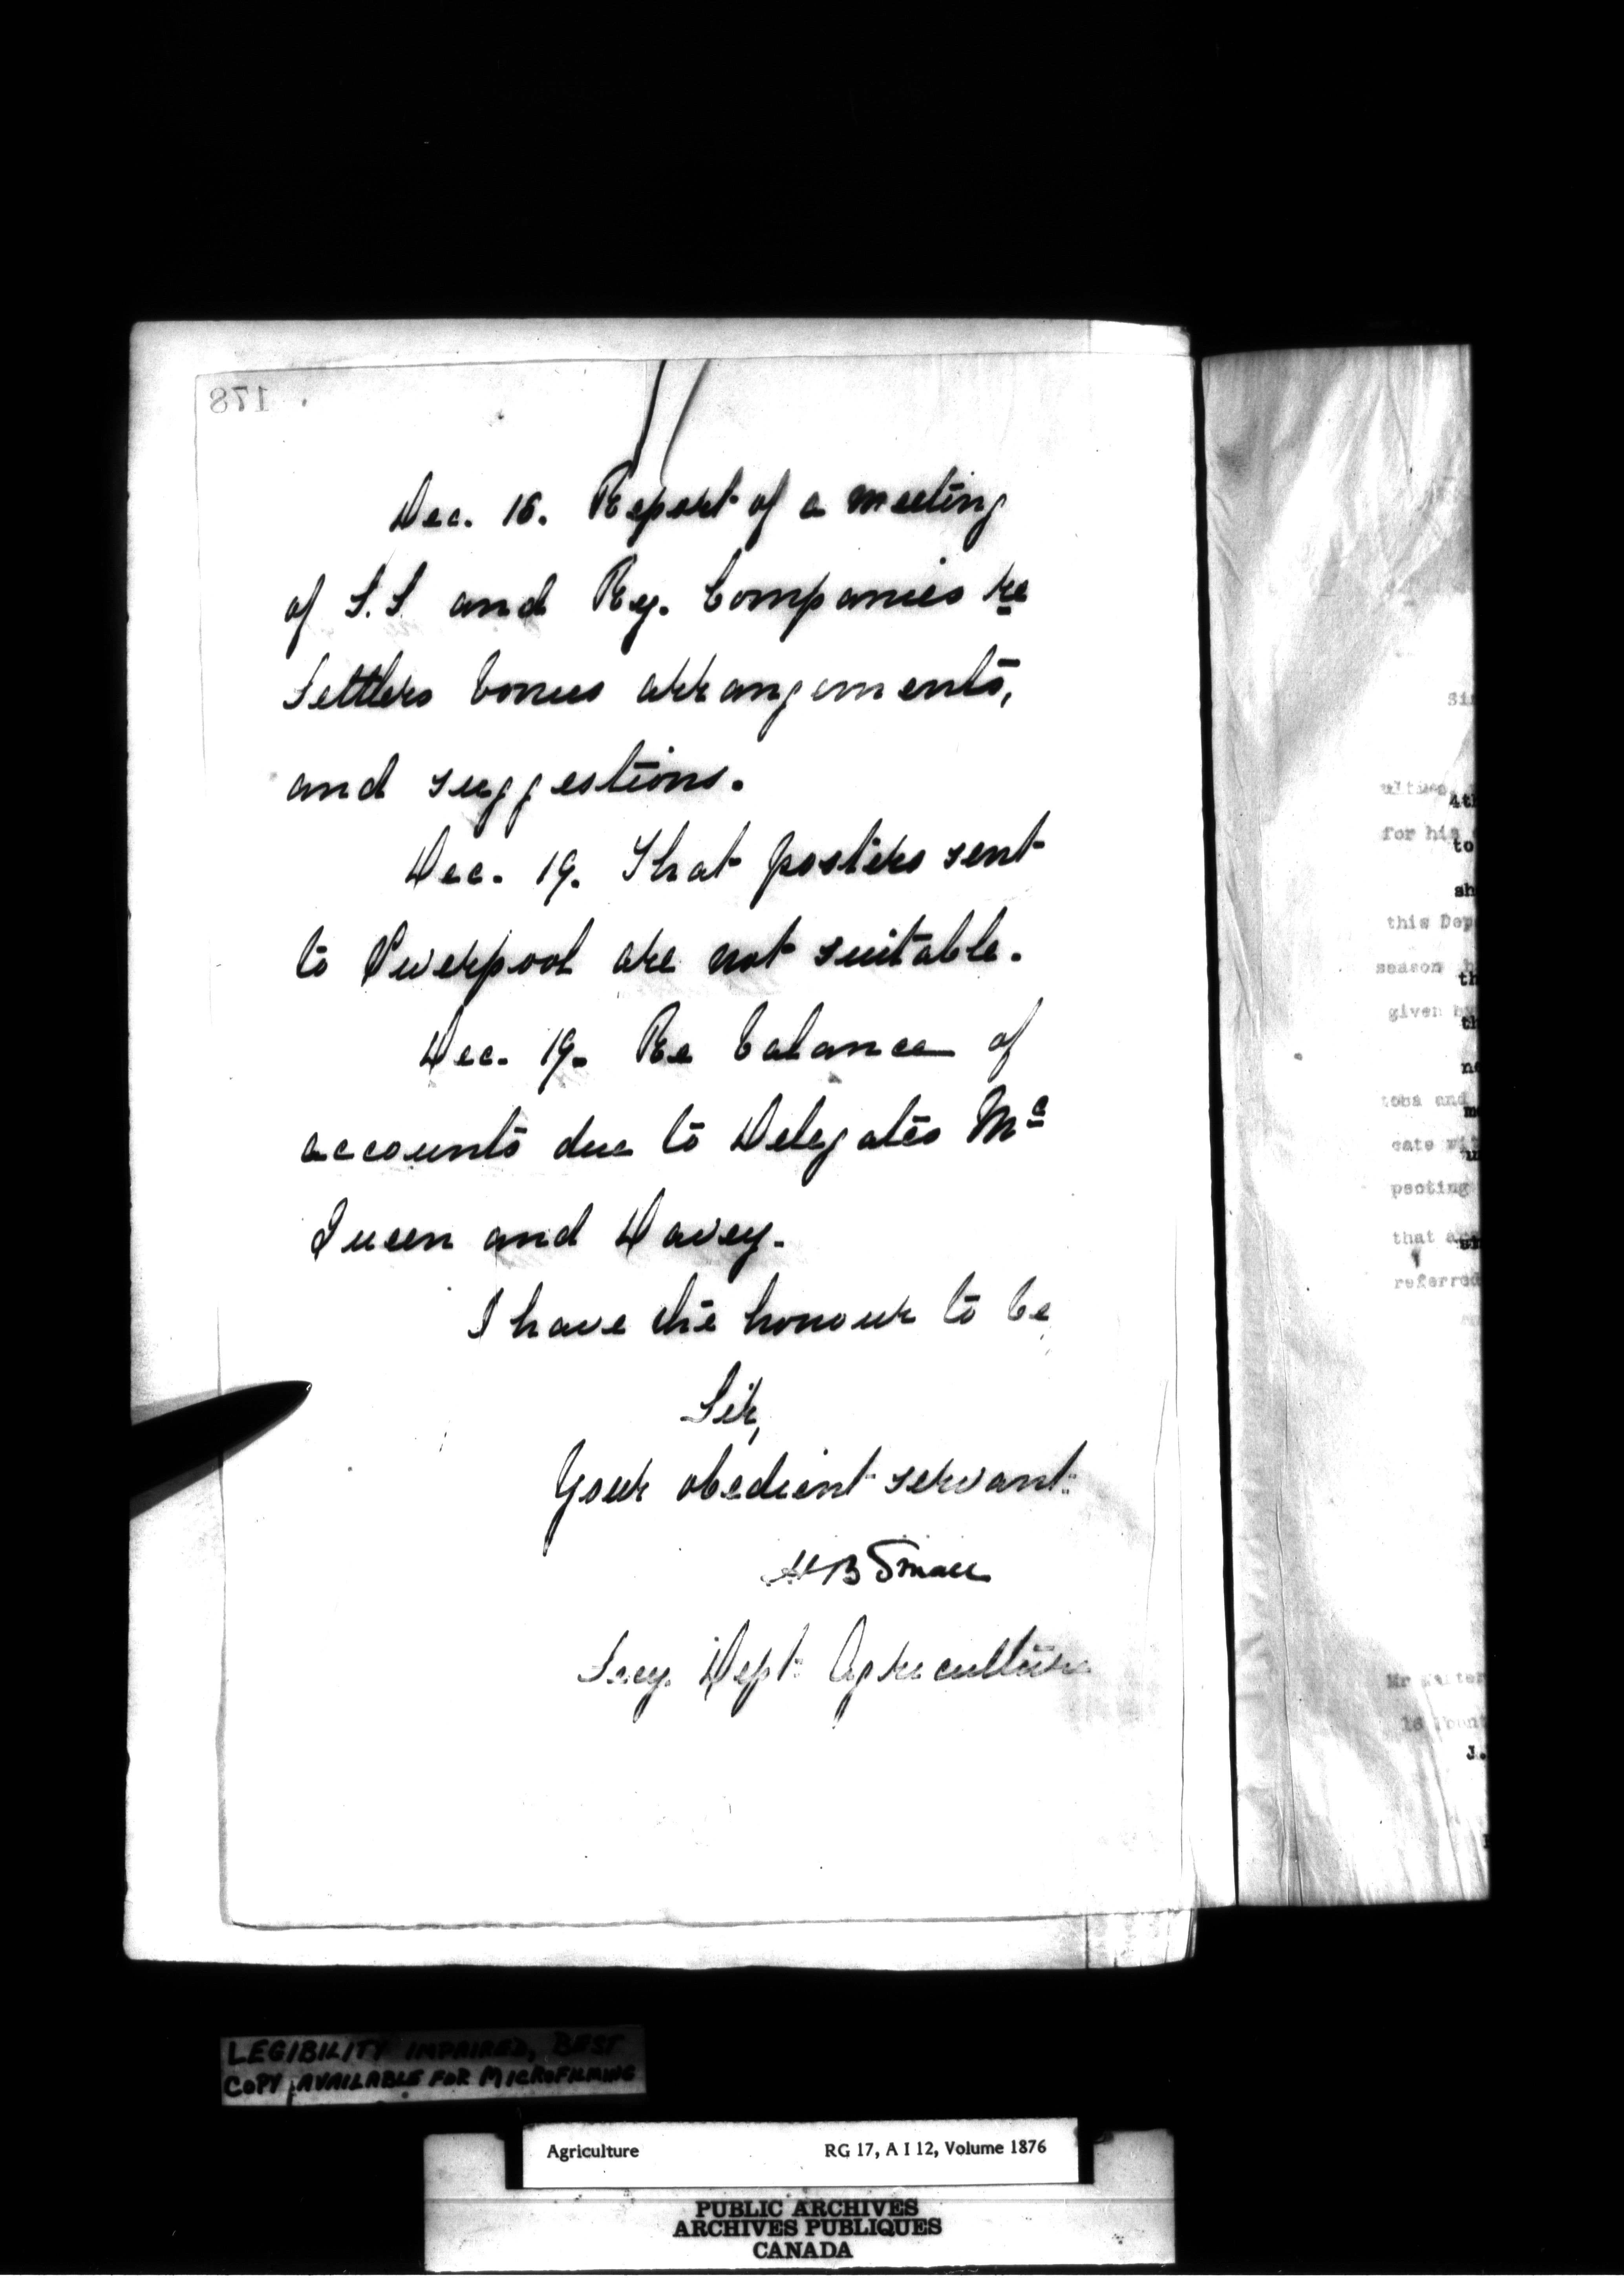 178
Dec. 18. Report of a meeting
of S.S and Ry. Companies re
Settlers bonus arrangements,
and suggestions.
Dec. 19. That posters sent
to Liverpool are not suitable.
Dec. 19. Re balance of
accounts due to Delegates Mc
Queen and Davey.
I have the honour to be
Sir,
Your obedient servant.
H B Small
Secy. Dept. Agriculture
Sir
4th
for his
to
sh
this Dep
season
th
given by
th
ne
toba and
cate
pecting
that
referred
Mr
J.
LEGIBILITY IMPAIRED, BEST
COPY AVAILABLE FOR MICROFILMING
Agriculture RG 17, A I 12, Volume 1876
PUBLIC ARCHIVES
ARCHIVES PUBLIQUES
CANADA